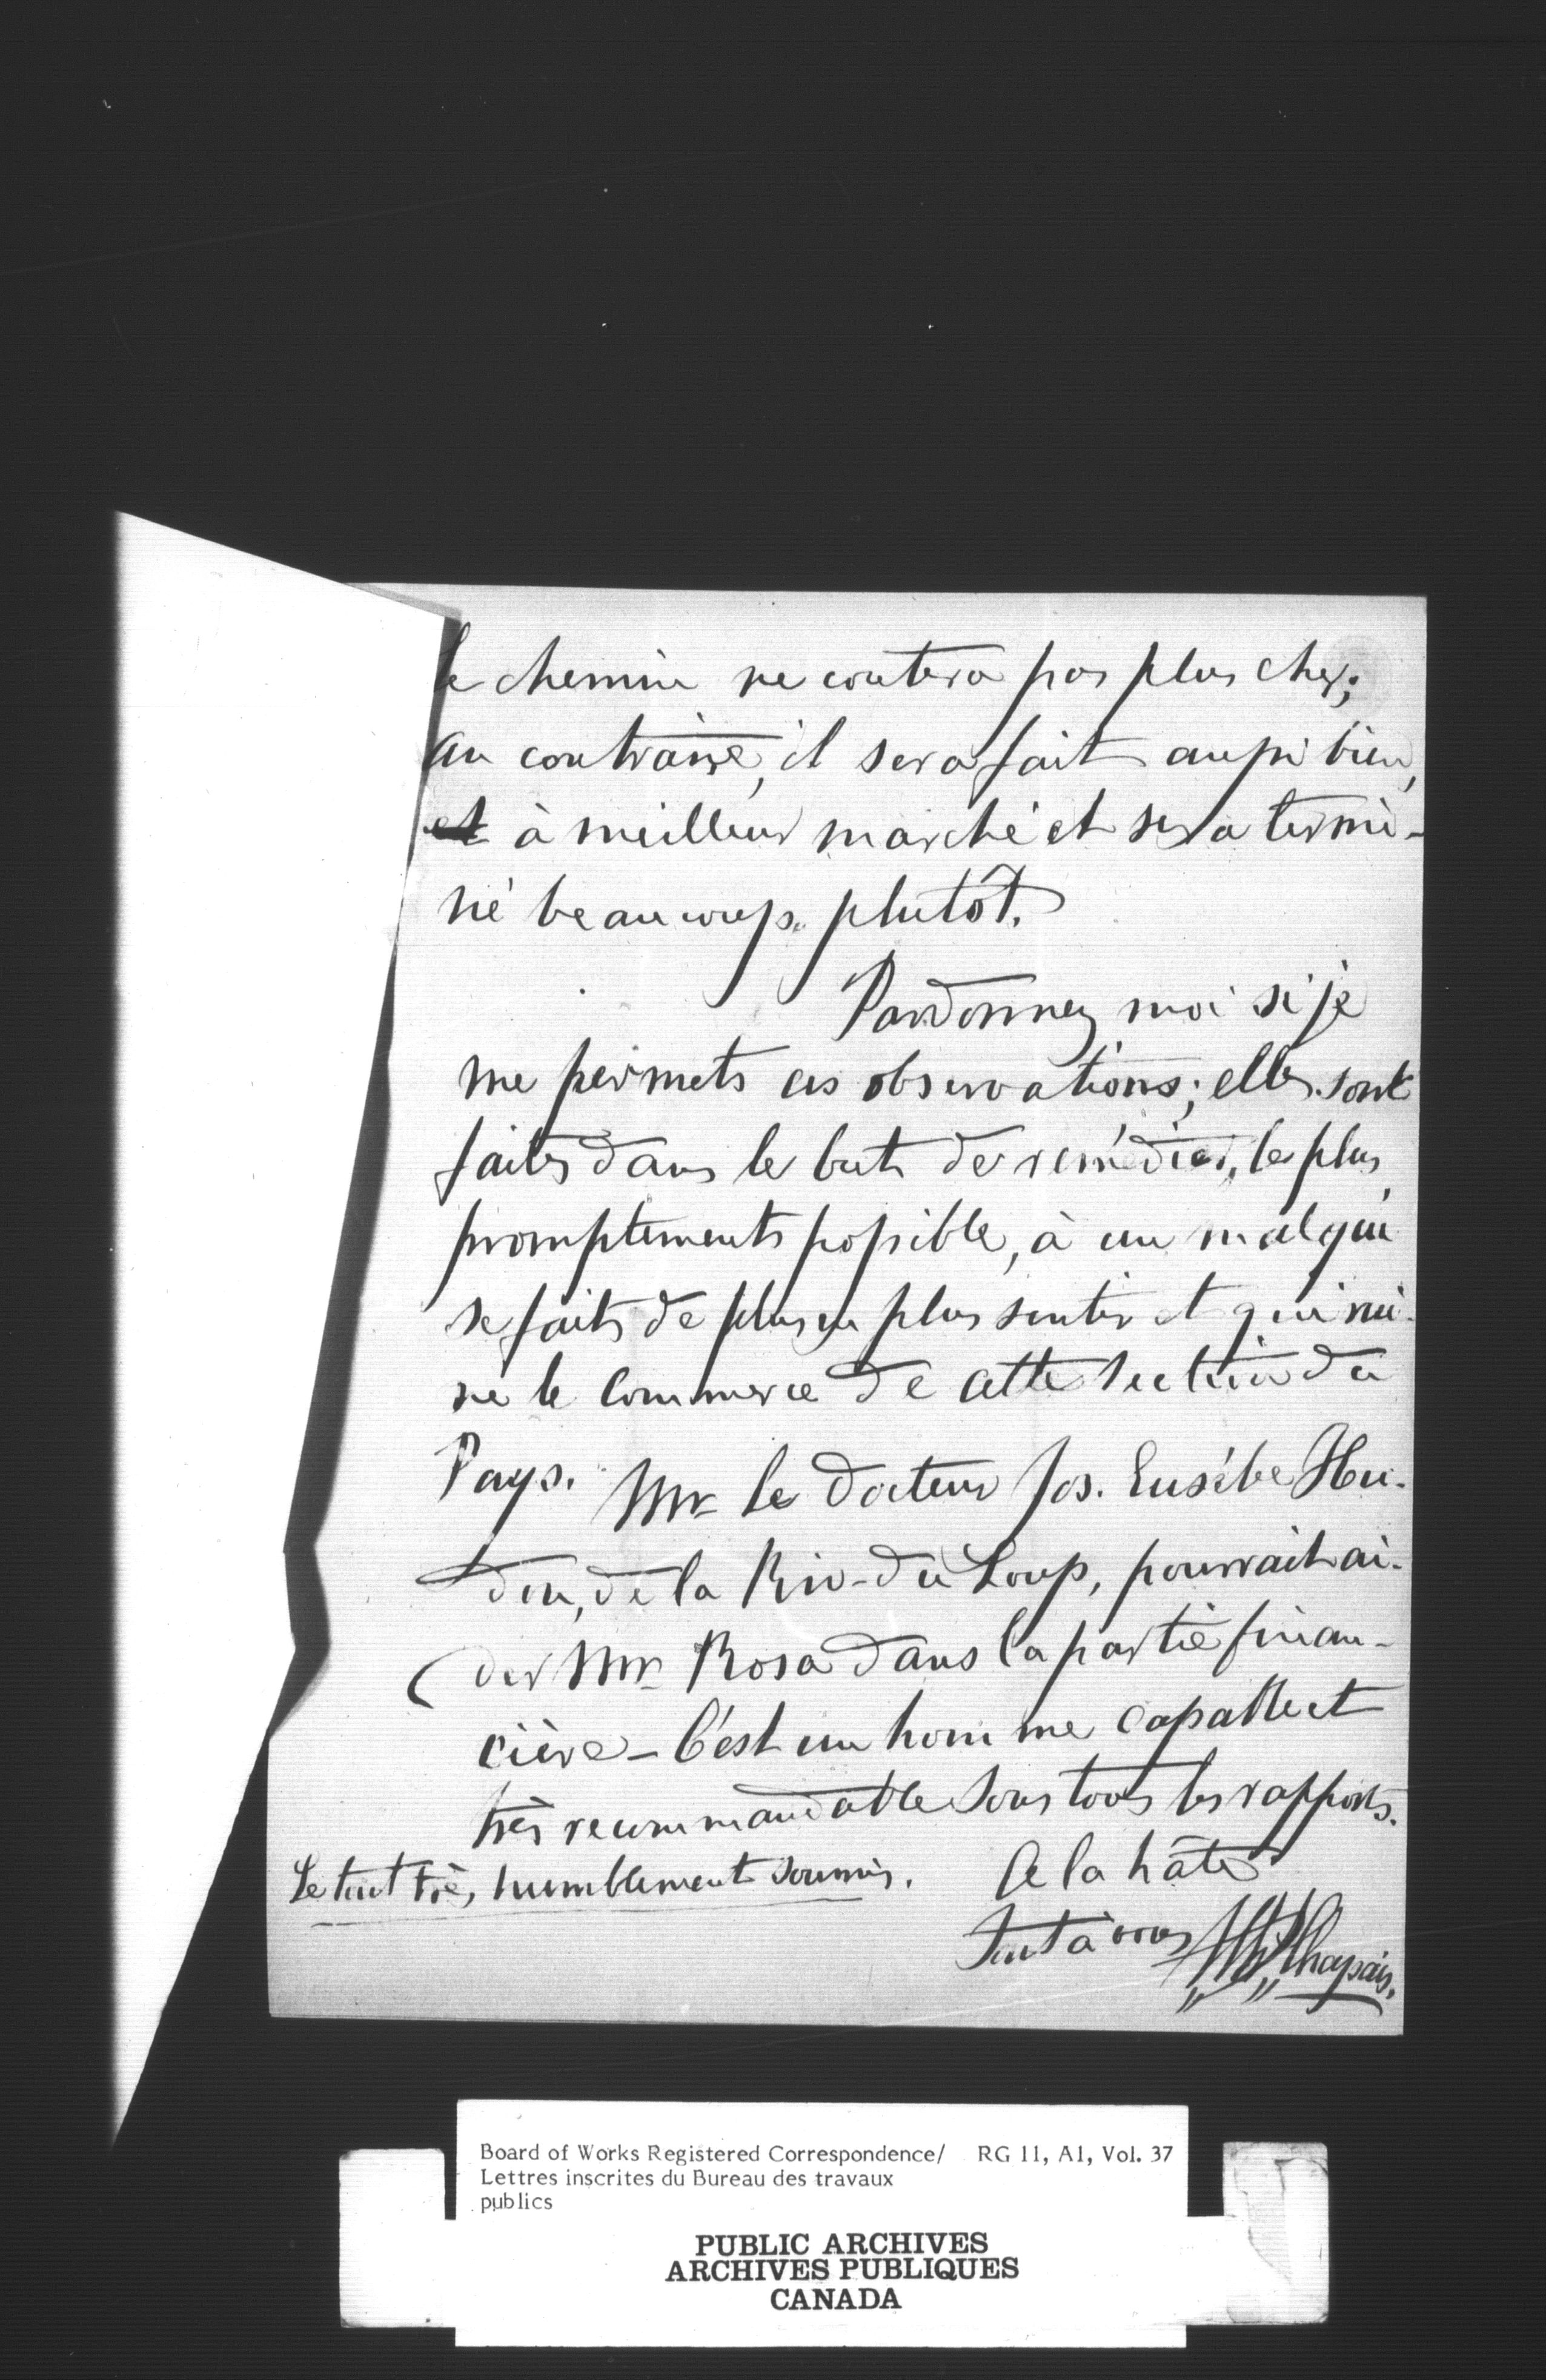 le chemin ne coutera pas plus cher;
au contraire, il sera fait aussi bien,
et à meilleur marché et sera termi-
né beaucoup plutôt.
Pardonnez moi si je
me permets ces observations; elles sont
faites dans le but de remédier, le plus
promptement possible, à un mal qui
se fait de plus en plus sentir et qui rui-
ne le Commerce de cette section du
Pays. Mr le docteur Jos. Eusèbe Hu-
don, de la Riv-du Loup, pourrait ai-
der Mr Rosa dans la partie finan-
cière - C'est un homme capable et
très recommandable sous tous les rapports.
Le tout très humblement soumis. A la hâte
Tout à vous Chapais.
Board of Works Registered Correspondence/ RG 11, A1, Vol. 37
Lettres inscrites du Bureau des travaux
publics
PUBLIC ARCHIVES
ARCHIVES PUBLIQUES
CANADA